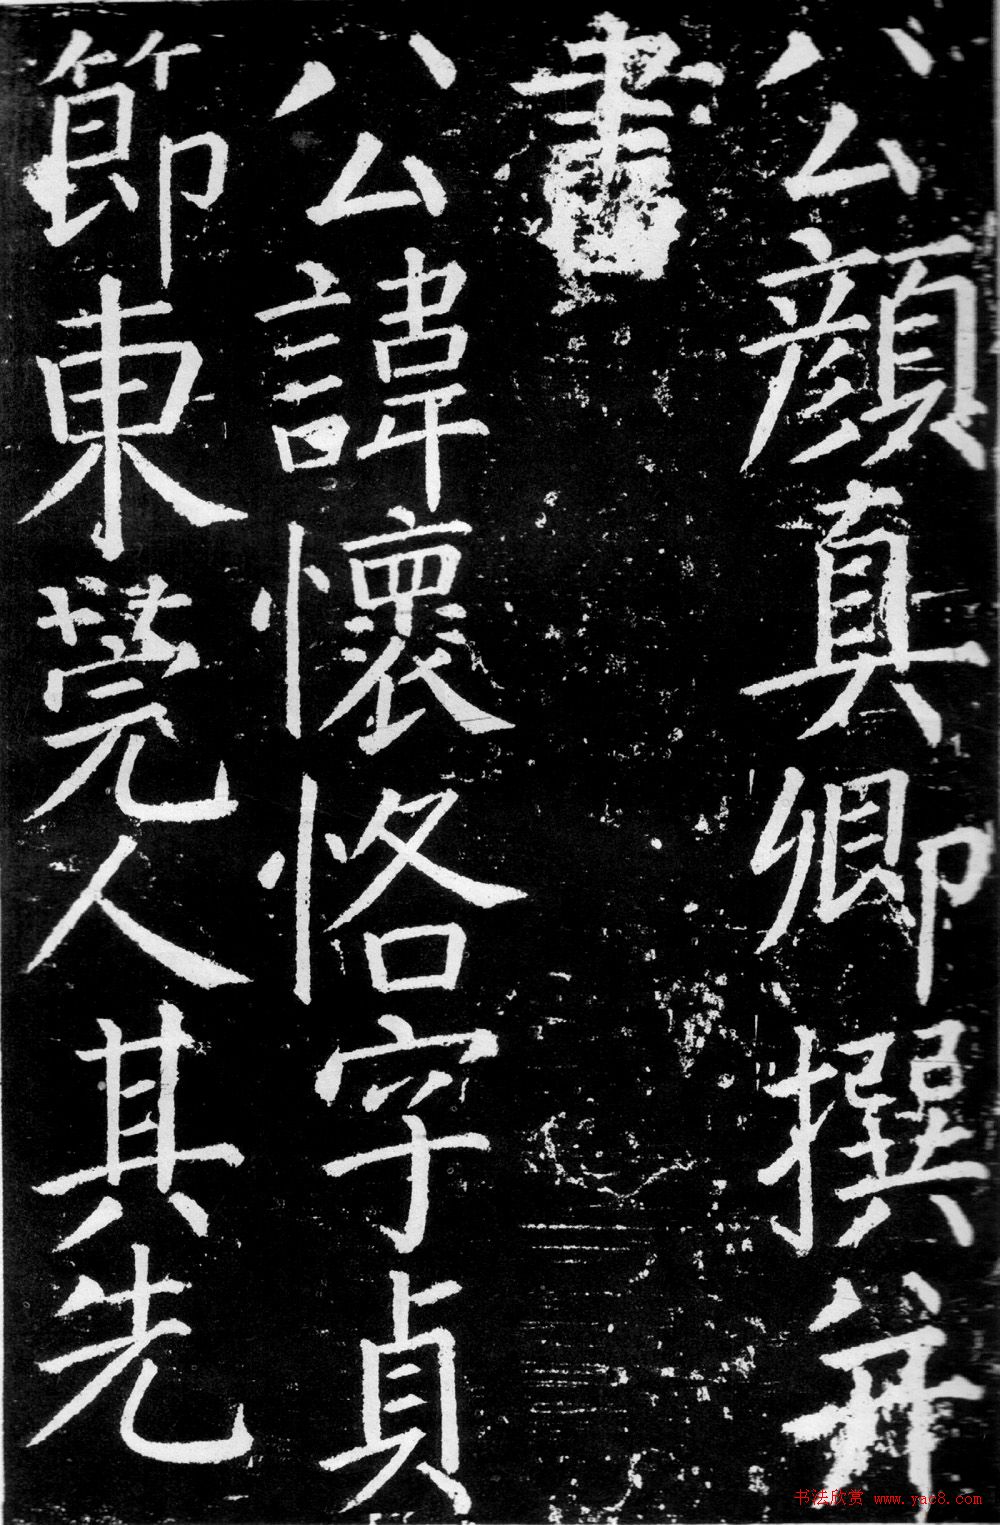 公顏真卿撰并
書
公諱懷恪字貞
節東莞人其先
书法欣赏 www.yac8.com